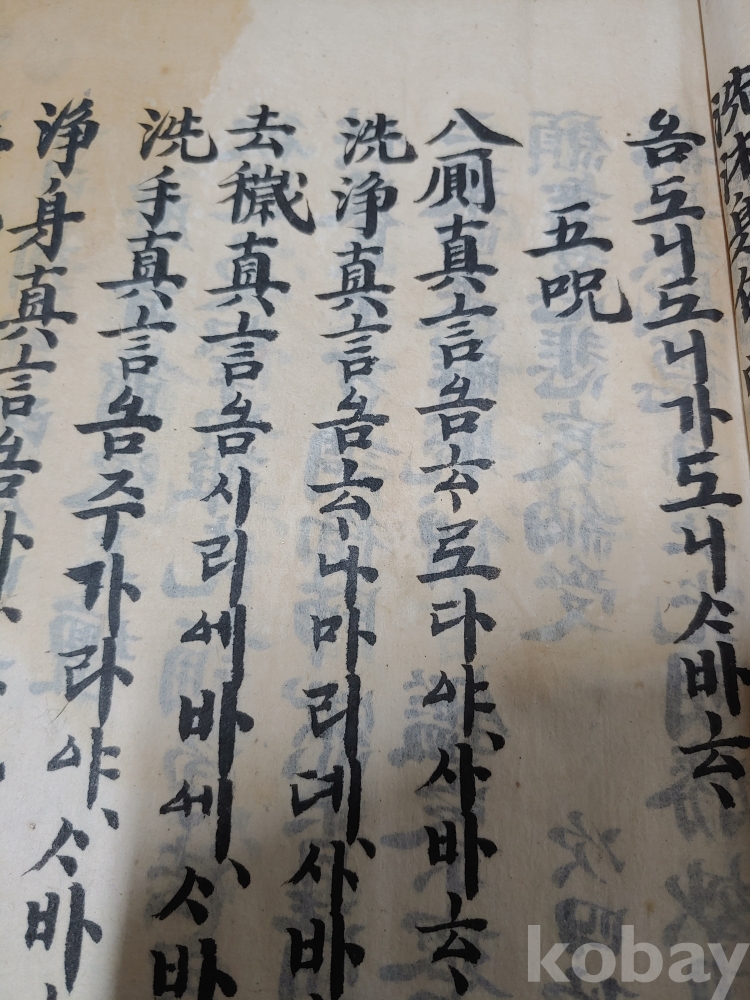 洗沐身
옴도니도니가도니ᄉᆞ바하
五呪
入厠真言옴하로다야、사바하、
洗浄真言옴하나마리데、사바
去穢真言옴시리예바혜、ᄉᆞ바
洗手真言옴주가라야、ᄉᆞ바
浄身真言옴
kobay